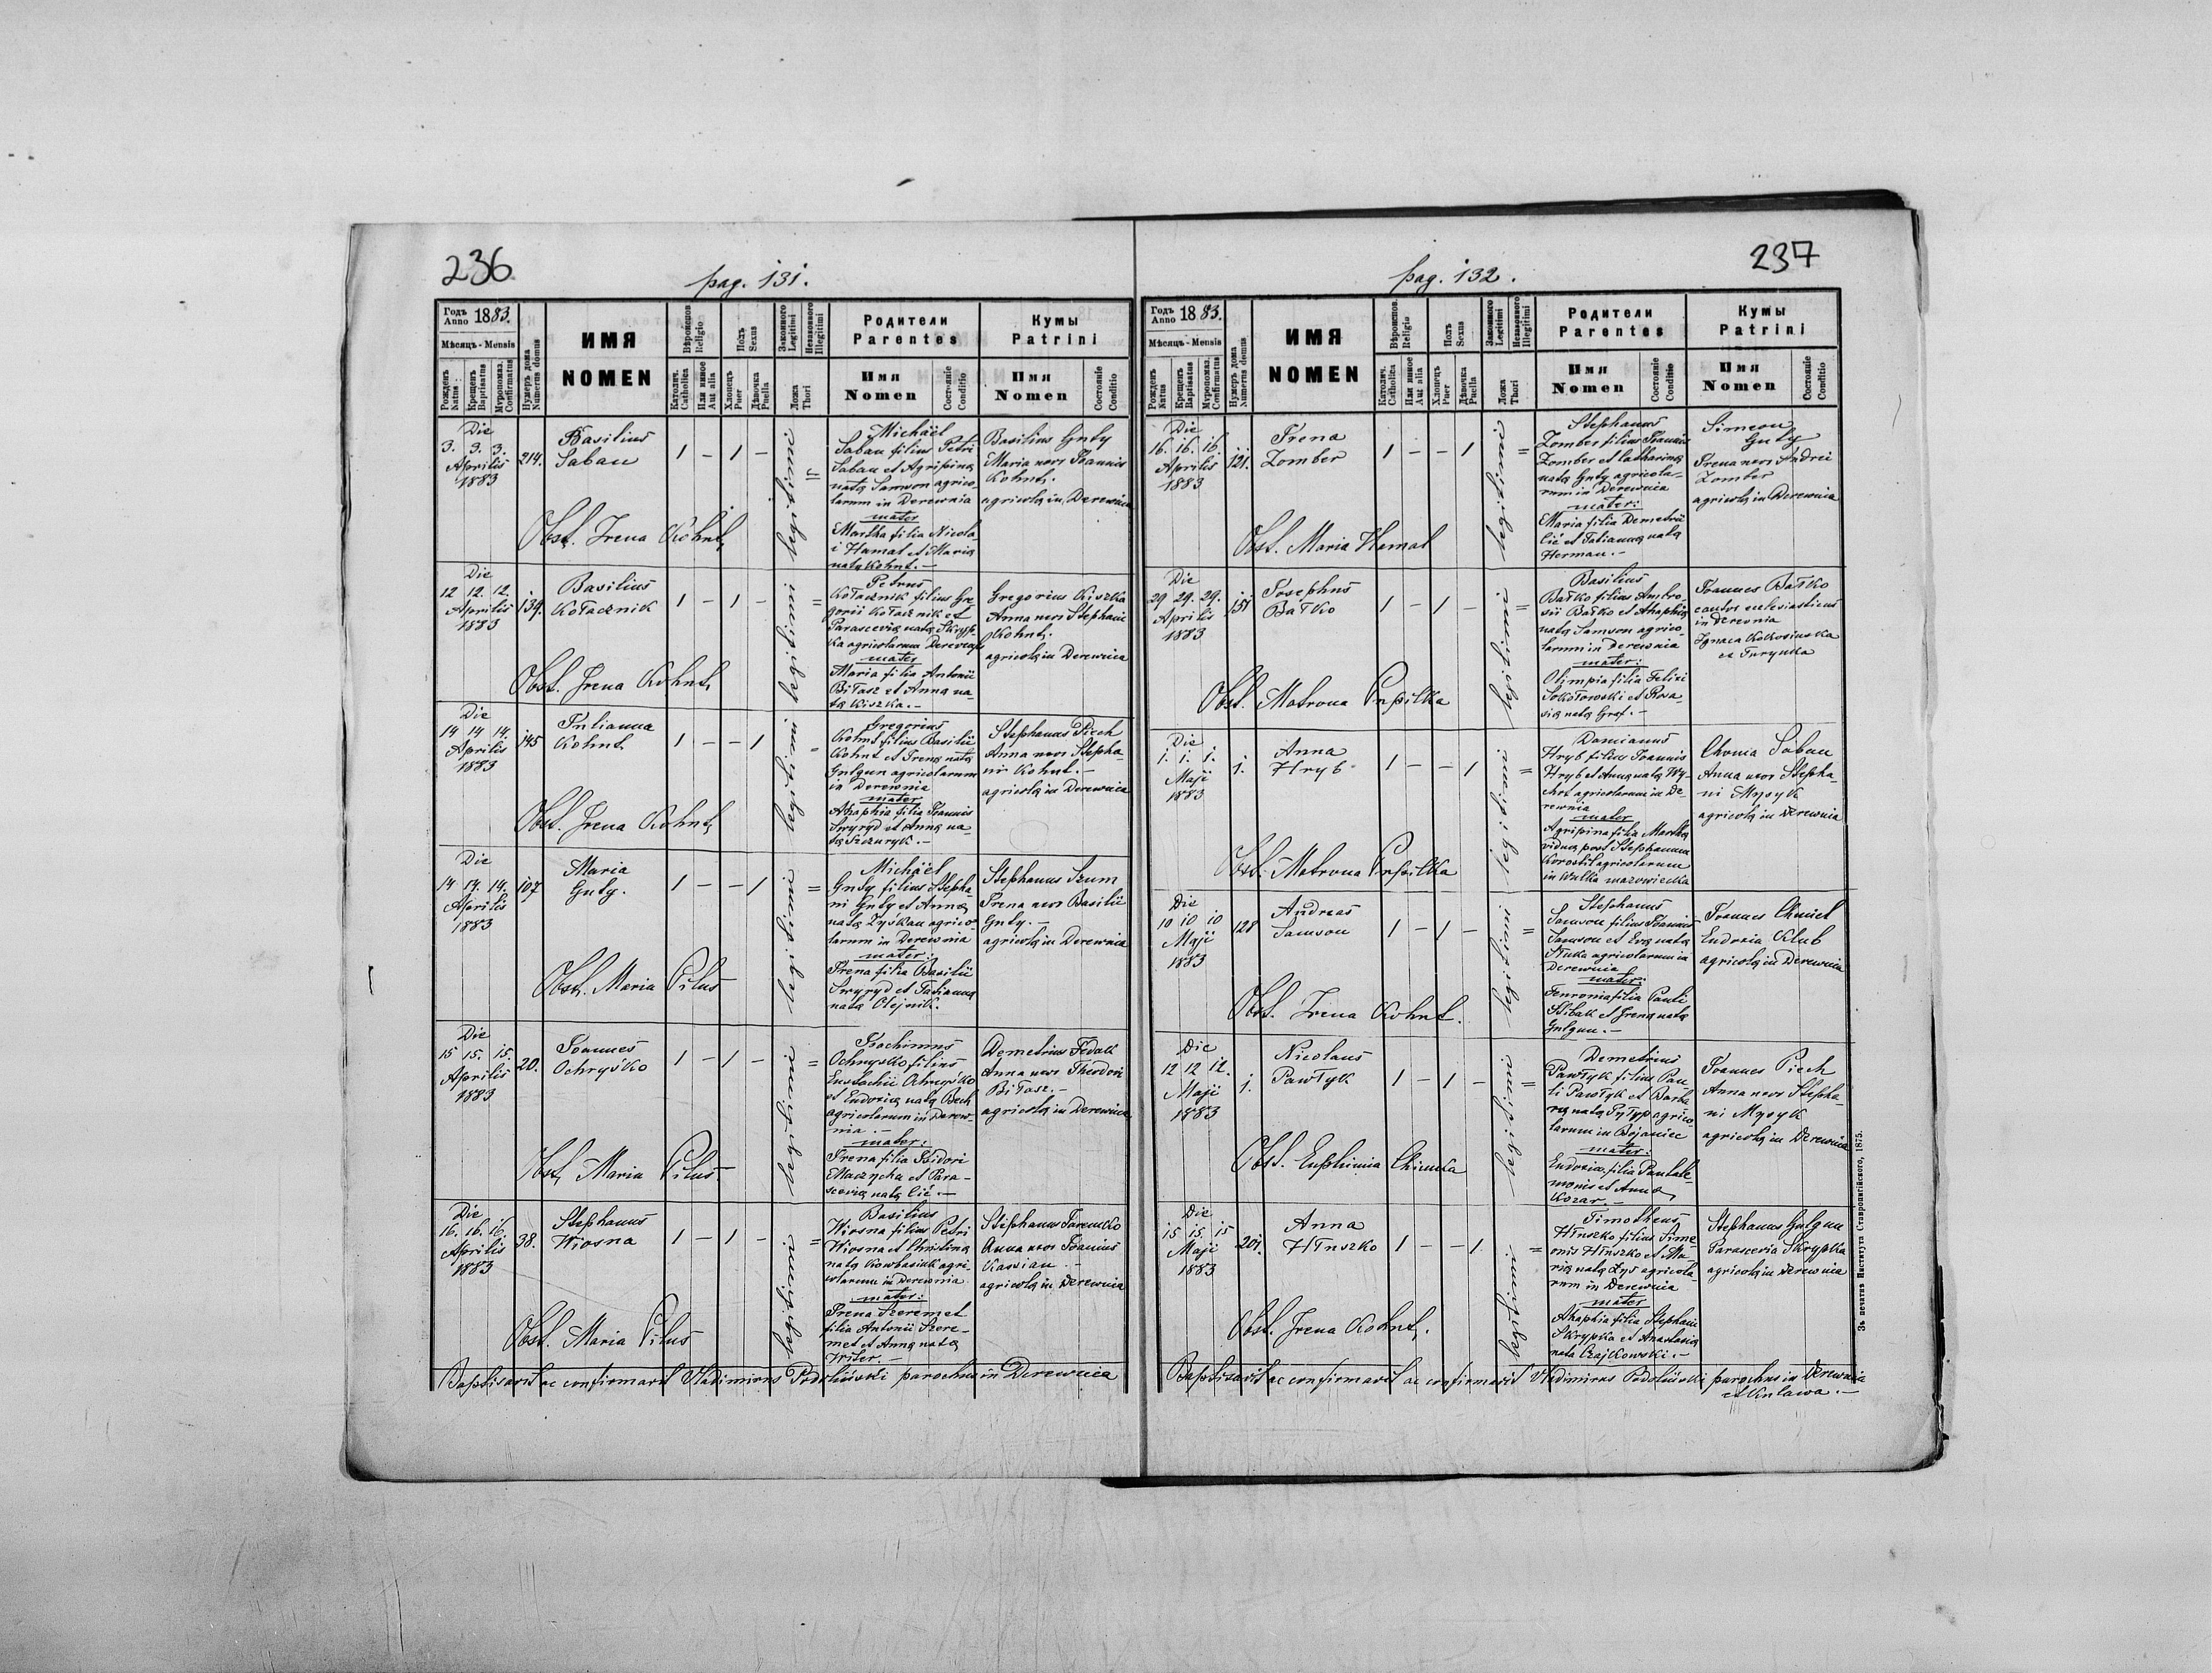 236
pag. 131.
Годъ Anno 1883.
Мѣсяцъ - Mensis
Рожденъ Natus
Крещенъ Baptisatus
Муропомаз. Confirmatus
Нумеръ дома Numerus domus
ИМЯ
NOMEN
Вѣроиспов. Religio
Католич. Catholica
Или иное Aut alia
Полъ Sexus
Хлопецъ Puer
Дѣвочка Puella
Законного Legitimi
Незаконного Illegitimi
Ложа Thori
Родители
Parentes
Имя
Nomen
Состояніе Conditio
Кумы
Patrini
Имя
Nomen
Состояніе Conditio
Die
3. 3. 3.
Aprilis
1883
214.
Basilius
Saban
1 - 1 -
legitimi
Michaël
Saban filius Petri
Saban et Agripina
nata Samson agrico-
larum in Derewnia
mater
Martha filia Nicola-
i Hamal et Maria
nata Kohut. -
Basilius Guty
Maria uxor Ioannis
Kohut.
agricola in Derewnia
Obst. Irena Kohut
Die
12 12. 12.
Aprilis
1883
139.
Basilius
Kołacznik
1 - 1 -
legitimi
Petrus
Kołacznik filius Gre
gorii Kołacznik et
Parascevia nata Skryp-
ka agricolarum Derewnia
mater
Maria filia Antonii
Biłasz et Anna na-
ta Kiszka. -
Gregorius Kiszka
Anna uxor Stephani
Kohut.
agricola in Derewnia
Obst. Irena Kohut
Die
14 14 14.
Aprilis
1883
145
Iulianna
Kohut
1 - - 1
legitimi
Gregorius
Kohut filius Basilii
Kohut et Irena nata
Gulgun agricolarum
in Derewnia
mater
Ahaphia filia Ioannis
Swyryd et Anna na-
ta Szczuryk. -
Stephanus Piech
Anna uxor Stepha-
ni Kohut. -
agricola in Derewnia
Obst. Irena Kohut
Die
14 14. 14.
Aprilis
1883
107
Maria
Guty.
1 - - 1
legitimi
Michaël
Guty filius Stepha-
ni Guty et Anna
nata Zyskau agrico-
larum in Derewnia
mater:
Irena filia Basilii
Swyryd et Tatianna
nata Olejnik.
Stephanus Szum
Irena uxor Basilii
Guty. -
agricola in Derewnia
Obst. Maria Pilus
Die
15 15. 15.
Aprilis
1883
20.
Ioannes
Ochryśko
1 - 1 -
legitimi
Ioachimus
Ochrysko filius
Eustachii Ochryśko
et Eudoxia nata Bech
agricolarum in Derew-
nia. -
mater:
Irena filia Isidori
Maczycha et Para-
scevia nata Cić. -
Demetrius Fedak
Anna uxor Theodori
Biłasz. -
agricola in Derewnia
Obst. Maria Pilus.
Die
16. 16. 16.
Aprilis
1883
38.
Stephanus
Wiosna
1 - 1 -
legitimi
Basilius
Wiosna filius Petri
Wiosna et Christina
nata Kowbasiuk agri-
colarum in Derewnia
mater:
Irena Szeremet
filia Antonii Szere-
met et Anna nata
Witer. -
Stephanus Jaremko
Anna uxor Ioannis
Kassian. -
agricola in Derewnia
Obst. Maria Pilus
Baptisavit ac confirmavit Vladimirus Podoliński parochus in Derewnia
237
pag. 132.
Годъ Anno 1883.
Мѣсяцъ - Mensis
Рожденъ Natus
Крещенъ Baptisatus
Муропомаз. Confirmatus
Нумеръ дома Numerus domus
ИМЯ
NOMEN
Вѣроиспов. Religio
Католич. Catholica
Или иное Aut alia
Полъ Sexus
Хлопецъ Puer
Дѣвочка Puella
Законного Legitimi
Незаконного Illegitimi
Ложа Thori
Родители
Parentes
Имя
Nomen
Состояніе Conditio
Кумы
Patrini
Имя
Nomen
Состояніе Conditio
Die
16. 16. 16.
Aprilis
1883
121.
Irena
Zomber
1 - - 1
legitimi
Stephanus
Zomber filius Ioannis
Zomber et Catharina
nata Guty agricola-
rum in Derewnia
mater:
Maria filia Demetrii
Cić et Tatianna nata
Herman. -
Simeon
Guty
Irena uxor Andrei
Zomber
agricola in Derewnia
Obst. Maria Hamal
Die
29 29. 29.
Aprilis
1883
151
Iosephus
Batko
1 - 1 -
legitimi
Basilius
Batko filius Ambro-
sii Batko et Ahaphia
nata Samson agrico-
larum in Derewnia
mater:
Olimpia filia Felixi
Sokołowski et Rosa-
lia nata Graf. -
Ioannes Batko
cantor ecclesiasticus
in Derewnia
Ignaca Kokosinska
ex Turynka
Obst. Matrona Pupilka
Die
1. 1. 1.
Maji
1883
1.
Anna
Hryb
1 - - 1
legitimi
Damianus
Hryb filius Ioannis
Hryb et Anna nata Wy-
chot agricolarum in De-
rewnia
mater
Agripina filia Martha
vidua post Stephanum
Korostil agricolarum
in Wulka mazowiecka
Choma Saban
Anna uxor Stepha-
ni Mysyk
agricola in Derewnia
Obst. Matrona Pupilka
Die
10 10 10
Maji
1883
128
Andreas
Samson
1 - 1 -
legitimi
Stephanus
Samson filius Ioannis
Samson et Eva nata
Słuka agricolarum in
Derewnia
mater:
Fenronia filia Pauli
Skibak et Irena nata
Gulgun. -
Ioannes Chmiel
Eudoxia Klub
agricola in Derewnia
Obst. Irena Kohut.
Die
12 12 12.
Maji
1883
1.
Nicolaus
Pawłyk
1 - 1 -
legitimi
Demetrius
Pawłyk filius Pau-
li Pawłyk et Barba-
ra nata Pyłyp agrico-
larum in Bojaniec
mater:
Eudoxia filia Pantale-
monis et Anna
Kozar. -
Ioannes Piech
Anna uxor Stepha-
ni Mysyk
agricola in Derewnia
Obst. Euphimia Chimka
Die
15 15. 15
Maji
1883
201.
Anna
Hłuszko
1 - - 1
legitimi
Timotheus
Hłuszko filius Sime-
onis Hłuszko et Ma-
ria nata Zys agricola-
rum in Derewnia
mater
Ahaphia filia Stephani
Skrypka et Anastasia
nata Czajkowski. -
Stephanus Gulgun
Parascevia Skrypka
agricola in Derewnia
Obst. Irena Kohut.
Baptisavit ac confirmavit ac confirmavit Vladimirus Podoliński parochus in Derewnia
et Kulawa. -
Зъ печатнѣ Института Ставропигійского, 1875.